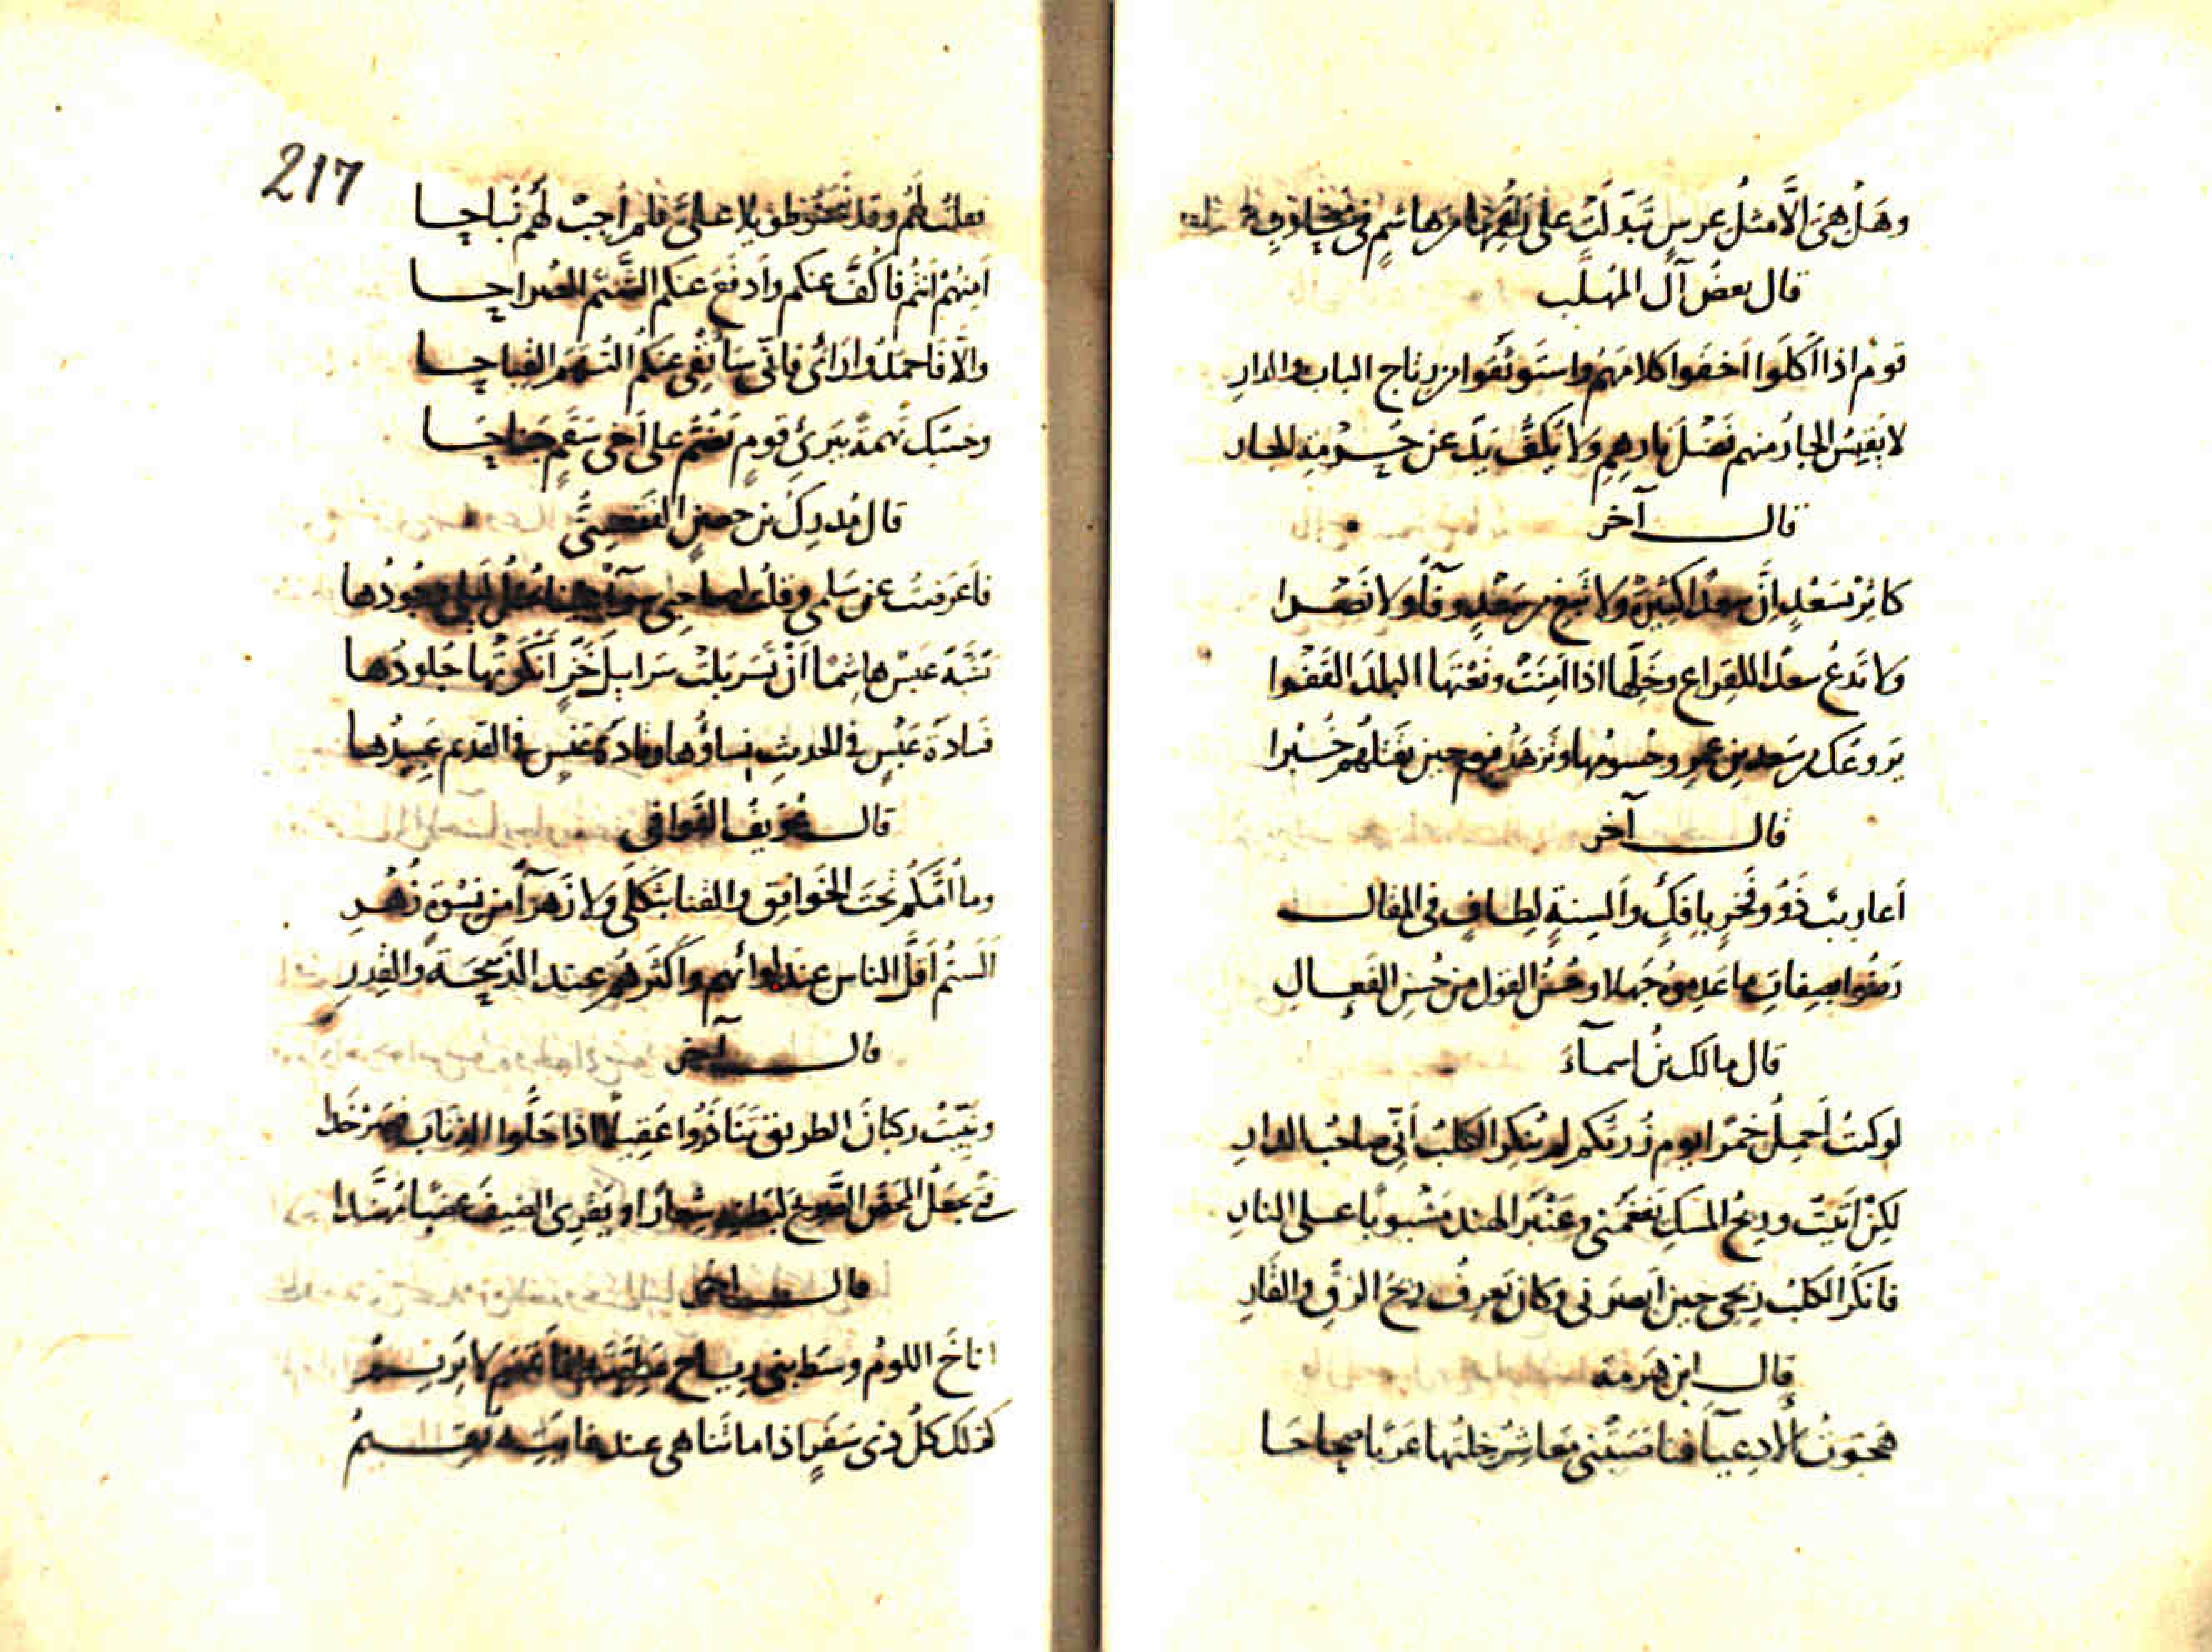 وهَلْ هىَ الَّا مثلُ عرسٍ تَبَدَّلَتْ على رَغْمِهَا مِنْ هاشِمٍ فى مُحَارِبِ
قال بعضُ آل المهلب
قومٌ اذا أكلَوا اَخفَوا كلامَهُمُ واستَوثَقُوا مِن رِتاج الباب والدارِ
لا يَقبِسُ الجارُ منهم فَضْلَ نارِهِمِ ولا تَكُفُّ يَدٌ عن حُرمةِ الجار
قال آخر
كاثِرْ بسَعْدٍ اِنَّ سعدًا كثِيرَةٌ ولا تَبْغِ مِن سَعْدٍ وفآءً ولا نَصْرا
ولا تَدْعُ سعدًا للقِراعِ وخَلِّها اذا اَمِنَتْ ونَعْتَهَا البلَدَ القَفْرا
يَروعُكَ مِن سَعدِ بنِ عمرٍو جُسومُها وتَزهَدُ فيها حين تَقتُلُها خُبْرا
قال آخر
أعاريبٌ ذَوُو فَخْرٍ بإفكٍ وأَلسِنةٍ لِطافٍ فى المقال
رَضُوا بصِفاتِ ما عَدِموهُ جَهلاً وحُسْنُ القول مِن حُسنِ الفَعالِ
قال مالك بنُ اسمآءَ
لو كنتُ اَحمِلُ خمْرًا يوم زُرتُكمُ لم يُنكِرِ الكلبُ اَنّى صاحبُ الدارِ
لكِنْ اَتَيتُ وريحُ المسكِ تَفغَمُنى وعَنْبَرُ الهند مَشْبوبًا على النارِ
فانكَرَ الكلبُ ريحى حين اَبصرَنى وكان يَعرِفُ ريحَ الزِقّ والقارِ
قال ابن هَرمة
هجَوتُ الادعيآءَ فناصَبَتْنى مَعاشِرُ خِلتُها عَرَبًا صِحاحَا
فقلتُ لهُم وقد نَبَحُوا طويلا عَلىَّ فلم اُجِبْ لهُم نُباحَا
اَمِنهُمْ اَنتُمُ فاكُفَّ عنكم واَدفَعَ عنكم الشَّتمَ الصُراحا
والّا فاحمَدُوا رَائى فانّى سَاَنْفِى عنكمُ التُهَمَ القِباحا
وحَسْبُكَ تُهمةً ببَرىءِ قومٍ يَضُمُّ على اَخى سَقَمٍ جَناحَا
قال مُدرِكُ بن حصنٍ الفَقعَسِىُّ
تَشَبَّهُ عَبْسٌ هاشِمًا اَنْ تَسَربَلَتْ سَرابيلَ خَزٍّ اَنكَرَتْها جُلودُها
فسادَةُ عَبْسٍ فى الحديثِ نِساؤُها وقادةُ عَبْسٍ فى القديمِ عَبِيدُها
قال عُوَيفُ القَوافى
وما اُمُّكُم تحتَ الخَوافِقِ والقَنا بثَكْلَى ولا زَهرآءَ من نِسْوةٍ زُهْرِ
اَلَستُم اَقَلَّ الناس عند لوائهم واَكثَرَهُم عند الذَّبيحَةِ والقِدرِ
قال آخر
ونُبّئْتُ ركبانَ الطريقِ تَنَاذَرُوا عَقِيلًا اذا حَلُّوا الذِّنابَ فصَرْخَدا
فتًى يَجعَلُ المحضَ الصَّريحَ لبَطنِه شِعارًا ويَقْرِى الضيفَ عضْبًا مُهَنَّدا
قال اخر
اَناخَ اللومُ وسطَ بنى رِياحٍ مَطِيَّتَهُ فاَقسَمَ لا يَرِيمُ
كذلك كلُّ ذى سَفَرٍ اذا ما تَناهى عند غايتِهِ يُقيمُ
217